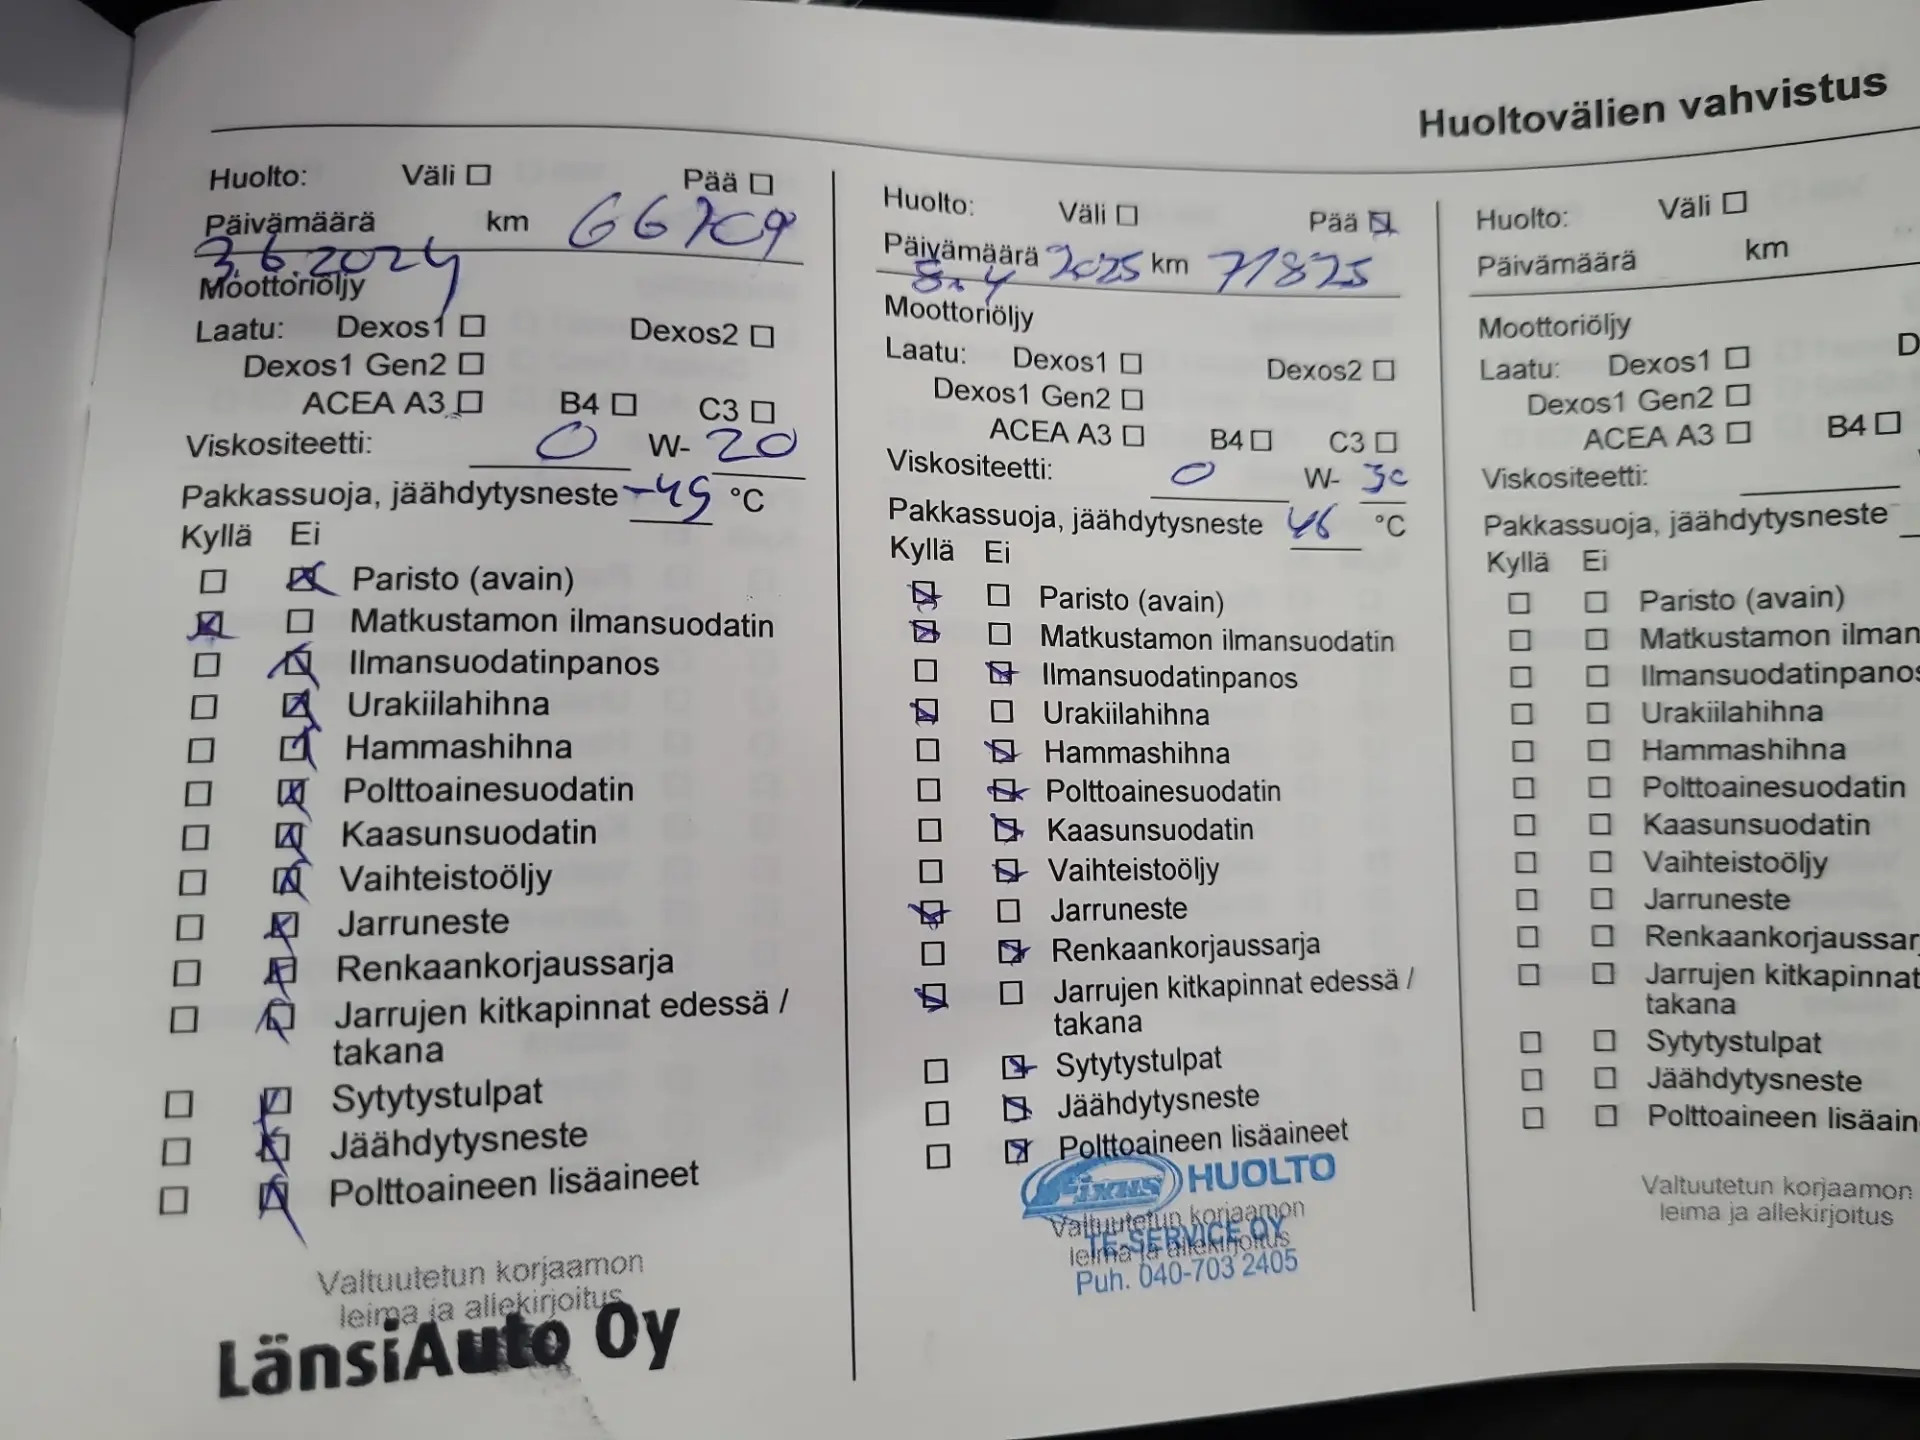 Huoltovälien vahvistus
Huolto: Väli Pää
Päivämäärä km 66709
3.6.2024
Moottoriöljy
Laatu: Dexos1 Dexos2
Dexos1 Gen2
ACEA A3 B4 C3
Viskositeetti: 0 W- 20
Pakkassuoja, jäähdytysneste -45 °C
Kyllä Ei
Paristo (avain)
Matkustamon ilmansuodatin
Ilmansuodatinpanos
Urakiilahihna
Hammashihna
Polttoainesuodatin
Kaasunsuodatin
Vaihteistoöljy
Jarruneste
Renkaankorjaussarja
Jarrujen kitkapinnat edessä /
takana
Sytytystulpat
Jäähdytysneste
Polttoaineen lisäaineet
Valtuutetun korjaamon
leima ja allekirjoitus
LänsiAuto Oy
Huolto: Väli Pää
Päivämäärä 2025 km 71825
8.4
Moottoriöljy
Laatu: Dexos1 Dexos2
Dexos1 Gen2
ACEA A3 B4 C3
Viskositeetti: 0 W- 30
Pakkassuoja, jäähdytysneste 46 °C
Kyllä Ei
Paristo (avain)
Matkustamon ilmansuodatin
Ilmansuodatinpanos
Urakiilahihna
Hammashihna
Polttoainesuodatin
Kaasunsuodatin
Vaihteistoöljy
Jarruneste
Renkaankorjaussarja
Jarrujen kitkapinnat edessä /
takana
Sytytystulpat
Jäähdytysneste
Polttoaineen lisäaineet
Fixus HUOLTO
Valtuutetun korjaamon
TE-SERVICE OY
leima ja allekirjoitus
Puh. 040-703 2405
Huolto: Väli
Päivämäärä km
Moottoriöljy
Laatu: Dexos1 D
Dexos1 Gen2
ACEA A3 B4
Viskositeetti:
Pakkassuoja, jäähdytysneste
Kyllä Ei
Paristo (avain)
Matkustamon ilman
Ilmansuodatinpanos
Urakiilahihna
Hammashihna
Polttoainesuodatin
Kaasunsuodatin
Vaihteistoöljy
Jarruneste
Renkaankorjaussar
Jarrujen kitkapinnat
takana
Sytytystulpat
Jäähdytysneste
Polttoaineen lisäain
Valtuutetun korjaamon
leima ja allekirjoitus